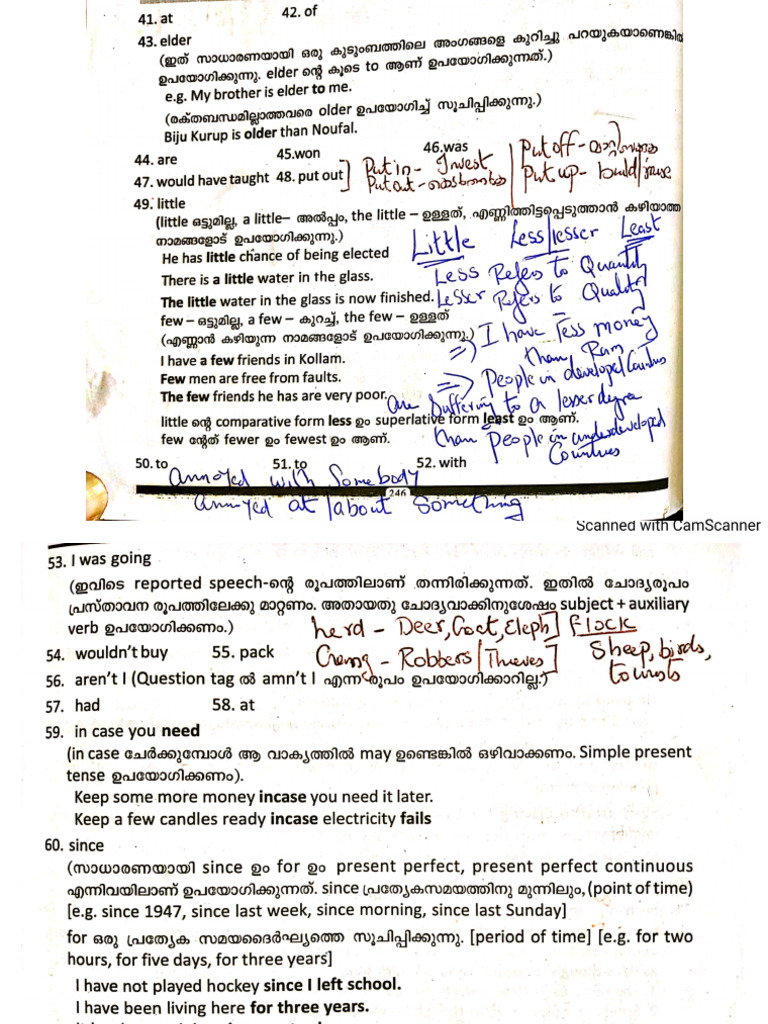 41. at 42. of
43. elder
(ഇത് സാധാരണയായി ഒരു കുടുംബത്തിലെ അംഗങ്ങളെ കുറിച്ചു പറയുകയാണെങ്കിൽ
ഉപയോഗിക്കുന്നു. elder ന്റെ കൂടെ to ആണ് ഉപയോഗിക്കുന്നത്.)
e.g. My brother is elder to me.
(രക്തബന്ധമില്ലാത്തവരെ older ഉപയോഗിച്ച് സൂചിപ്പിക്കുന്നു.)
Biju Kurup is older than Noufal.
44. are 45.won 46.was
47. would have taught 48. put out
Put in - Invest
Put out -
Put off -
Put up - build/raise
49. little
(little ഒട്ടുമില്ല, a little– അൽപ്പം, the little – ഉള്ളത്, എണ്ണിത്തിട്ടപ്പെടുത്താൻ കഴിയാത്ത
നാമങ്ങളോട് ഉപയോഗിക്കുന്നു.)
He has little chance of being elected
There is a little water in the glass.
The little water in the glass is now finished.
few – ഒട്ടുമില്ല, a few – കുറച്ച്, the few – ഉള്ളത്
(എണ്ണാൻ കഴിയുന്ന നാമങ്ങളോട് ഉപയോഗിക്കുന്നു.)
I have a few friends in Kollam.
Few men are free from faults.
The few friends he has are very poor.
little ന്റെ comparative form less ഉം superlative form least ഉം ആണ്.
few ന്റേത് fewer ഉം fewest ഉം ആണ്.
Little Less/lesser Least
Less Refers to Quantity
Lesser Refers to Quality
=> I have less money
than Ram
=> People in developed Countries
are suffering to a lesser degree
than people in underdeveloped
Countries
50. to 51. to 52. with
annoyed with Somebody
246
annoyed at/about Something
Scanned with CamScanner
53. I was going
(ഇവിടെ reported speech-ന്റെ രൂപത്തിലാണ് തന്നിരിക്കുന്നത്. ഇതിൽ ചോദ്യരൂപം
പ്രസ്താവന രൂപത്തിലേക്കു മാറ്റണം. അതായതു ചോദ്യവാക്കിനുശേഷം subject + auxiliary
verb ഉപയോഗിക്കണം.)
herd - Deer, Goat, Eleph] Flock
54. wouldn't buy 55. pack
Gang - Robbers/Thieves]
Sheep, birds,
tourists
56. aren't I (Question tag ൽ amn't I എന്ന രൂപം ഉപയോഗിക്കാറില്ല.)
57. had 58. at
59. in case you need
(in case ചേർക്കുമ്പോൾ ആ വാക്യത്തിൽ may ഉണ്ടെങ്കിൽ ഒഴിവാക്കണം. Simple present
tense ഉപയോഗിക്കണം).
Keep some more money incase you need it later.
Keep a few candles ready incase electricity fails
60. since
(സാധാരണയായി since ഉം for ഉം present perfect, present perfect continuous
എന്നിവയിലാണ് ഉപയോഗിക്കുന്നത്. since പ്രത്യേകസമയത്തിനു മുന്നിലും, (point of time)
[e.g. since 1947, since last week, since morning, since last Sunday]
for ഒരു പ്രത്യേക സമയദൈർഘ്യത്തെ സൂചിപ്പിക്കുന്നു. [period of time] [e.g. for two
hours, for five days, for three years]
I have not played hockey since I left school.
I have been living here for three years.